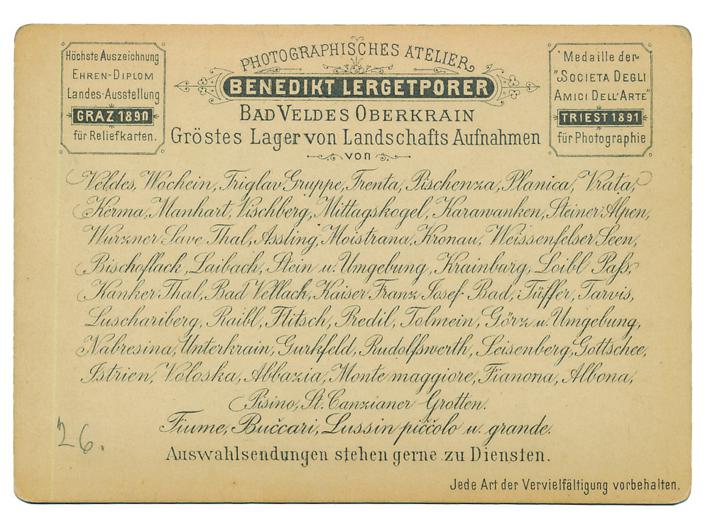 Höchste Auszeichnung
EHREN-DIPLOM
Landes-Ausstellung
GRAZ 1890
für Reliefkarten.
PHOTOGRAPHISCHES ATELIER
BENEDIKT LERGETPORER
BAD VELDES OBERKRAIN
Gröstes Lager von Landschafts Aufnahmen
von
Medaille der
"SOCIETA DEGLI
AMICI DELL'ARTE"
TRIEST 1891
für Photographie
Veldes, Wochein, Triglav Gruppe, Trenta, Pischenza, Planica, Vrata,
Kerma, Manhart, Vischberg, Mittagskogel, Karawanken, Steiner Alpen,
Wurzner Save Thal, Assling, Moistrana, Kronau, Weissenfelser Seen,
Bischoflack, Laibach, Stein u. Umgebung, Krainburg, Loibl Paß,
Kanker Thal, Bad Vellach, Kaiser Franz Josef Bad, Tüffer, Tarvis,
Luschariberg, Raibl, Flitsch, Predil, Tolmein, Görz u. Umgebung,
Nabresina, Unterkrain, Gurkfeld, Rudolfswerth, Seisenberg, Gottschee,
Istrien, Voloska, Abbazia, Monte maggiore, Fianona, Albona,
Pisino, St. Canzianer Grotten.
Fiume, Buccari, Lussin piccolo u. grande.
Auswahlsendungen stehen gerne zu Diensten.
26.
Jede Art der Vervielfältigung vorbehalten.